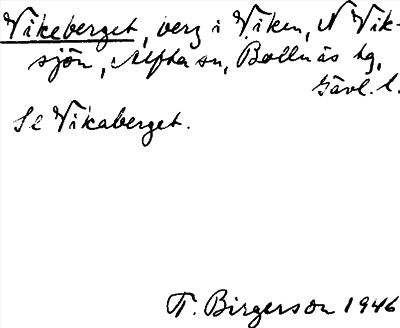 Vikeberget, berg i Viken, N Vik-
sjön, Alfta sn, Bollnäs tg,
Gävl. l.
Se Vikaberget.
T. Birgerson 1946